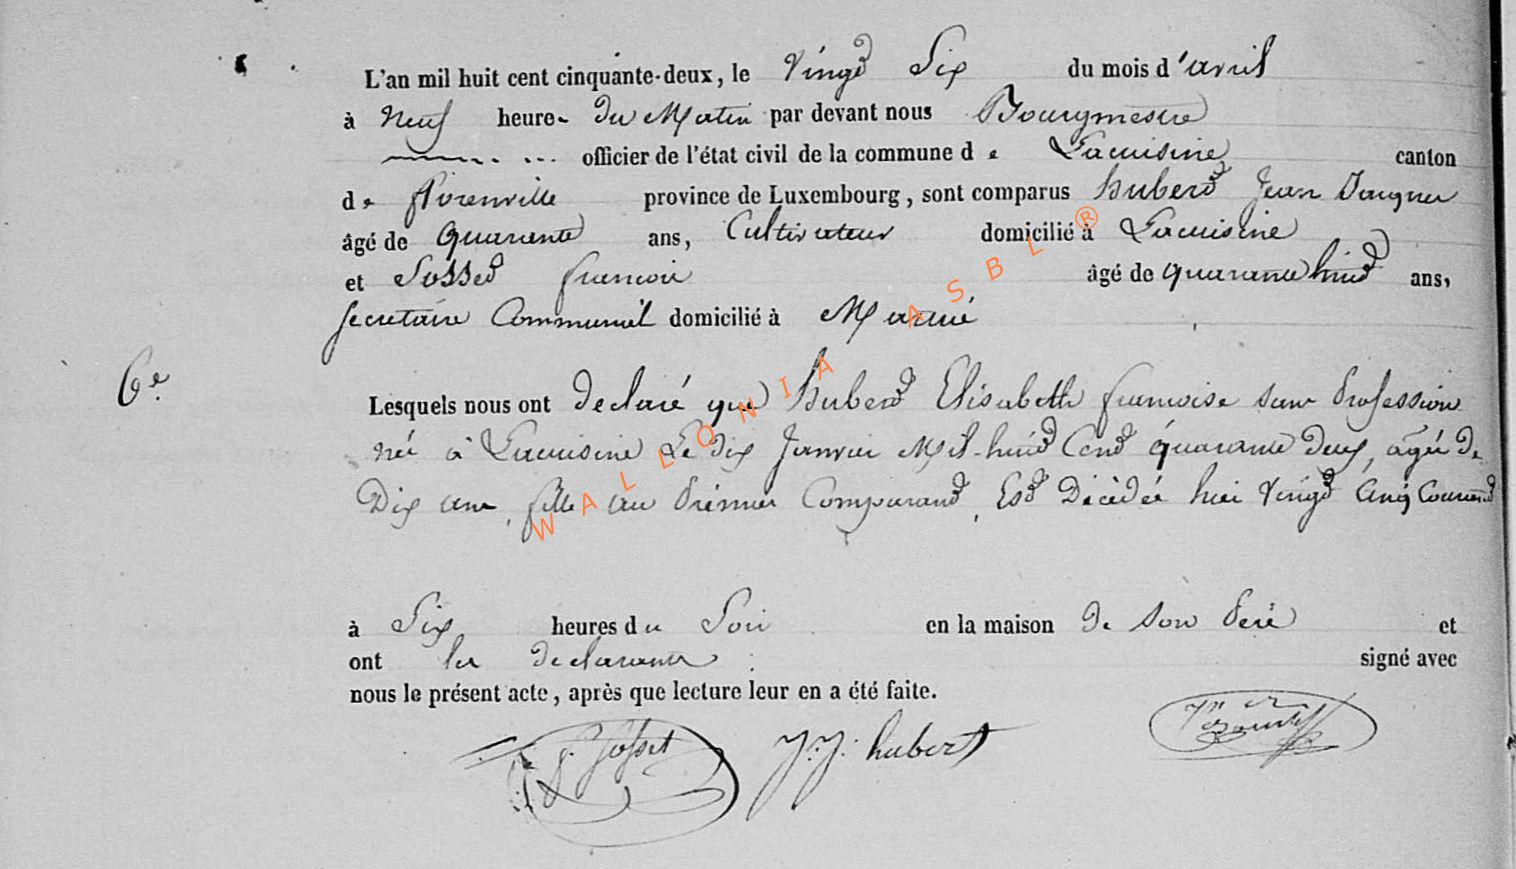 L'an mil huit cent cinquante-deux, le vingt Six du mois d'avril
à neuf heure du Matin par devant nous Bourgmestre
officier de l'état civil de la commune de Lacuisine canton
de florenville province de Luxembourg, sont comparus hubert Jean
âgé de quarante ans, Cultivateur domicilié à Lacuisine
et Josset françois âgé de quarante huit ans,
secretaire Communal domicilié à
6e.
Lesquels nous ont declaré que hubert Elisabeth françoise sans Profession
née à Lacuisine Le dix Janvier Mil-huit Cent quarante deux, agée de
Dix ans, fille au Premier Comparant, Est Décédée hier vingt Cinq Courant
à Six heures du Soir en la maison de son Père et
ont les declarants signé avec
nous le présent acte, après que lecture leur en a été faite.
f. Josset J.J. hubert
WALLONIA ASBL®